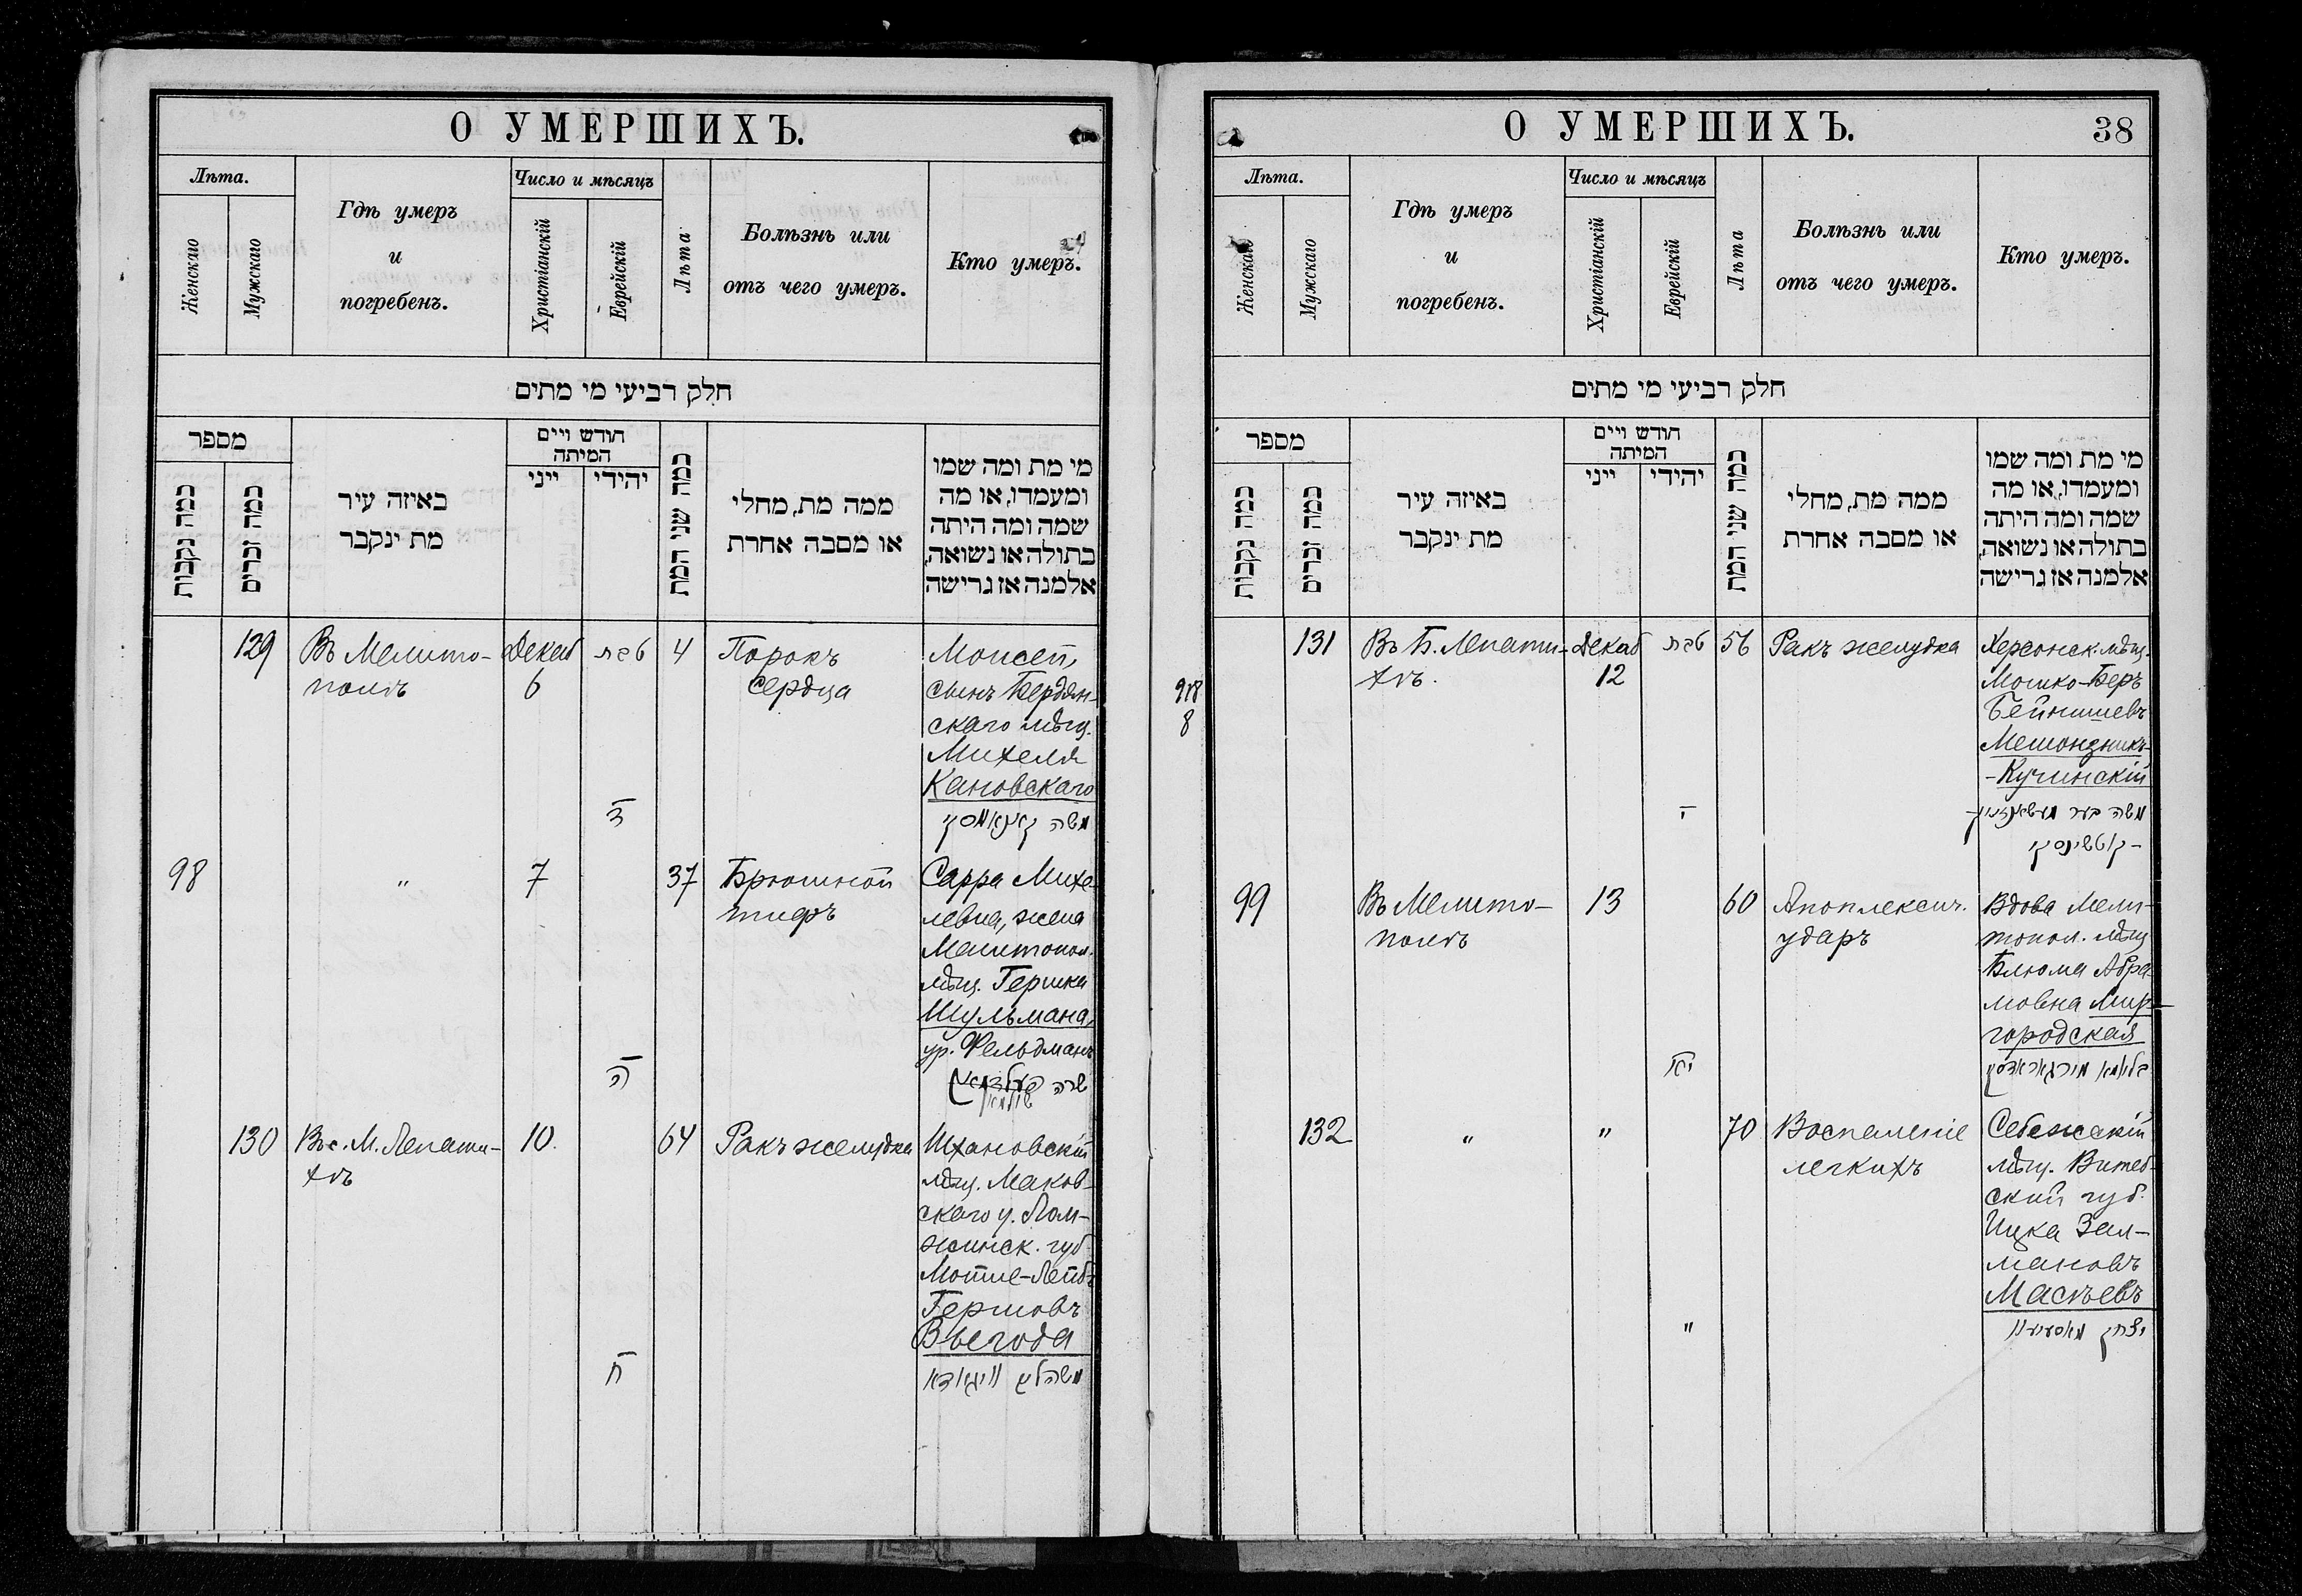 О УМЕРШИХЪ.
Лѣта.
Женскаго
Мужскаго
Гдѣ умеръ
и
погребенъ.
Число и мѣсяцъ
Христіанскій
Еврейскій
Лѣта
Болѣзнь или
отъ чего умеръ.
Кто умеръ.
חלק רביעי מי מתים
מספר
כמה נקבות
כמה זכרים
באיזה עיר
מת ינקבר
חודש ויים
המיתה
ייני
יהידי
כמה שני המת
ממה מת, מחלי
או מסבה אחרת
מי מת ומה שמו
ומעמדו, או מה
שמה ומה היתה
בתולה או נשואה,
אלמנה אז גרישה
129
Въ Мелито-
полѣ
Декаб
6
טבת
ד
4
Порокъ
сердца
Моисей,
сынъ Бердян-
скаго мѣщ.
Михеля
Кановскаго
משה קאנאווסקי
98
"
7
ה
37
Брюшной
тифъ
Сарра Михе-
левна, жена
Мелитопол.
мѣщ. Гершка
Шульмана,
ур. Фельдманъ
שרה פעלדמאן
שולמאן
130
Въ с. М. Лепати-
хѣ
10.
ח
64
Ракъ желудка
мѣщ. Маков-
скаго у. Лом-
жинск. губ.
Мотле-Лейбъ
Гершовъ
Выгода
וויגאדא
О УМЕРШИХЪ.
38
Лѣта.
Женскаго
Мужскаго
Гдѣ умеръ
и
погребенъ.
Число и мѣсяцъ
Христіанскій
Еврейскій
Лѣта
Болѣзнь или
отъ чего умеръ.
Кто умеръ.
חלק רביעי מי מתים
מספר
כמה נקבות
כמה זכרים
באיזה עיר
מת ינקבר
חודש ויים
המיתה
ייני
יהידי
כמה שני המת
ממה מת, מחלי
או מסבה אחרת
מי מת ומה שמו
ומעמדו, או מה
שמה ומה היתה
בתולה או נשואה,
אלמנה אז גרישה
131
Въ Б. Лепати-
хѣ.
Декаб
12
טבת
י
56
Ракъ желудка
Херсонск. мѣщ.
Мошко-Беръ
Бейнишевъ
Мешондзникъ-
-Кучинскій
משה בער מעשאנדזניק
-קוטשינסקי
99
Въ Мелито-
полѣ
13
יא
60
Апоплексич.
ударъ
Вдова Мели-
топол. мѣщ
Блюма Абра-
мовна Мир-
городская
בלומא מירגאראדסקי
132
"
"
"
70
Воспаленіе
легкихъ
Себежскій
мѣщ. Витеб-
ской губ.
Ицка Зал-
мановъ
Масѣевъ
יצחק מאסייעוו